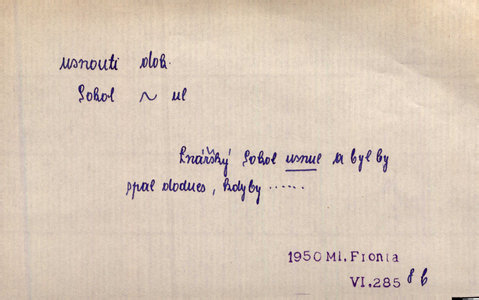 usnouti dok.
Sokol ~ ul
Lnářský Sokol usnul a byl by
spal dodnes, kdyby ......
1950 Ml. Fronta
VI.285 8 b